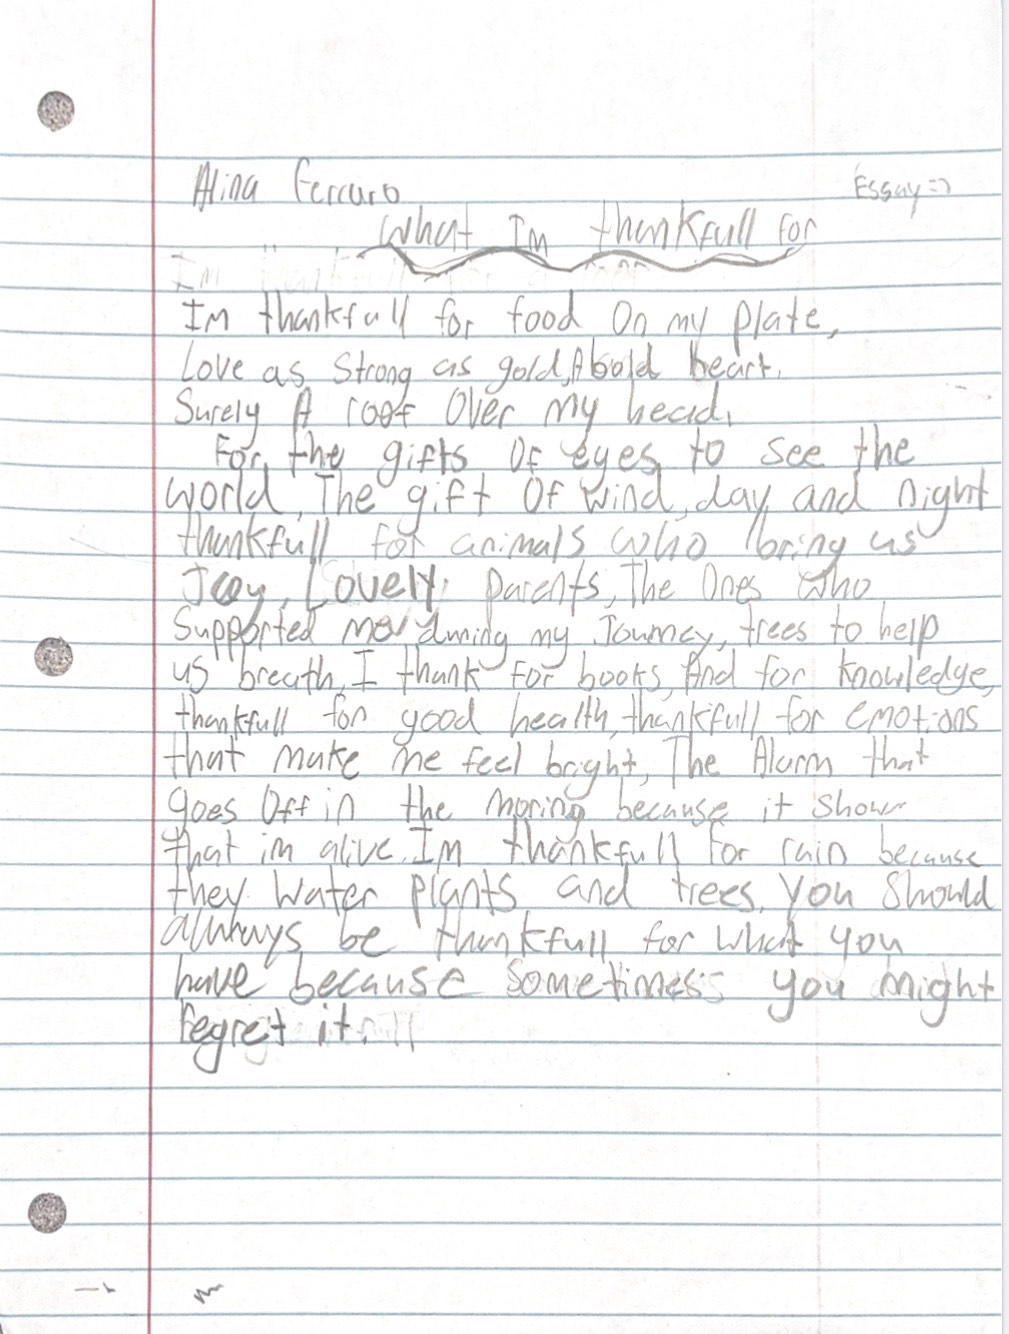 Alina Ferraro
Essay =)
What Im thankfull for
Im thankfull for food On my plate,
Love as Strong as gold, A bold heart.
Surely A roof Over my head.
For the gifts Of eyes, to see the
world, The gift Of wind, day, and night
thankfull for animals who bring us
Joy, Lovely parents, The Ones Who
Supported me during my Journey, trees to help
us breath, I thank for books, And for knowledge,
thankfull for good health, thankfull for emotions
that make me feel bright, The Alarm that
goes Off in the moring because it show
that im alive. Im thankfull for rain because
they Water plants and trees. You Should
always be thankfull for what you
have because Sometimes you might
Regret it.